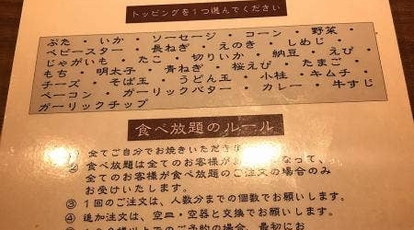 トッピングを1つ選んでください
ぶた ・ いか ・ ソーセージ ・ コーン ・ 野菜 ・
ベビースター ・ 長ねぎ ・ えのき ・ しめじ ・
じゃがいも ・ たこ ・ 切りいか ・ 納豆 ・ えび ・
もち ・ 明太子 ・ 青ねぎ ・ 桜えび ・ たまご ・
チーズ ・ そば玉 ・ うどん玉 ・ 小柱 ・ キムチ ・
ベーコン ・ ガーリックバター ・ カレー ・ 牛すじ
ガーリックチップ
食べ放題のルール
① 全てご自分でお焼きいただき
② 食べ放題は全てのお客様が なって、
全てのお客様が食べ放題のご注文の場合のみ
お受けいたします。
③ 1回のご注文は、人数分までの個数でお願いします。
④ 追加注文は、空皿・空器と交換でお願いします。
のご予約の場合、最初にお